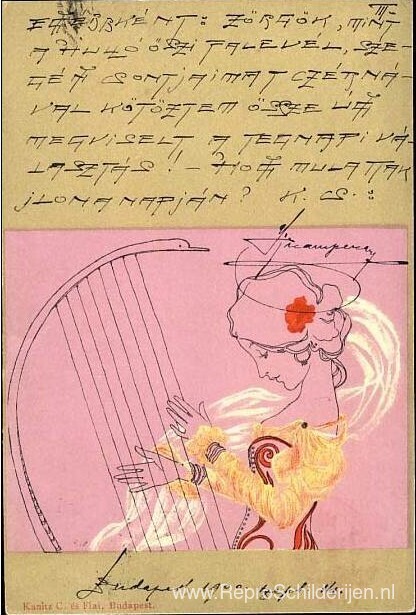 III.
EGYÉBKÉNT: ZÖRGÖK, MINT
A HULLÓ ŐSZI FALEVÉL, SZE-
GÉNY CSONTJAIMAT CZÉRNÁ-
VAL KÖTÖZTEM ÖSSZE ÚGY
MEGVISELT A TEGNAPI VÁ-
LASZTÁS! – HOGY MULATTAK
JLONA NAPJÁN? K. CS.:
Budapest
Kanitz C. és Fiai, Budapest.
www.ReproSchilderijen.nl